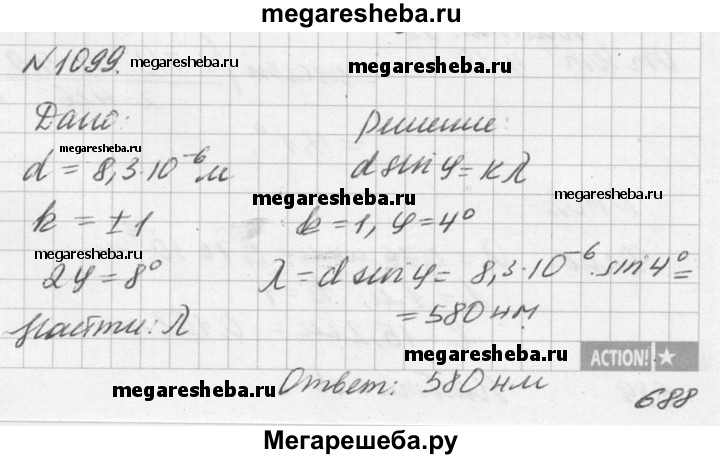 megaresheba.ru
№1099.
megaresheba.ru
megaresheba.ru
Дано:
Решение:
megaresheba.ru
d = 8,3·10⁻⁶м
d sin φ = kλ
megaresheba.ru
megaresheba.ru
k = ±1
k = 1, φ = 4°
megaresheba.ru
2φ = 8°
λ = d sin φ = 8,3·10⁻⁶·sin 4° =
= 580 нм
Найти: λ
megaresheba.ru
ACTION!
megaresheba.ru
Ответ: 580 нм
688
Мегарешеба.ру